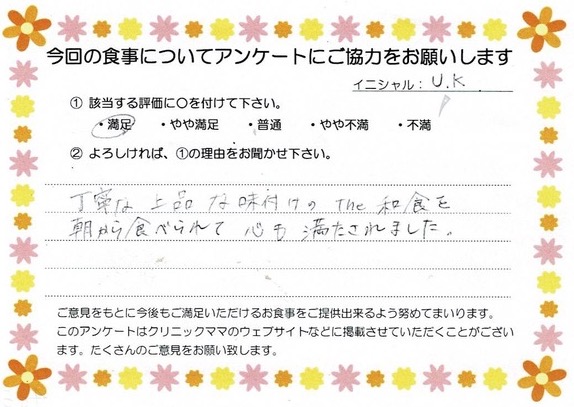 今回の食事についてアンケートにご協力をお願いします
イニシャル： U.K
① 該当する評価に○を付けて下さい。
・満足 ・やや満足 ・普通 ・やや不満 ・不満
② よろしければ、①の理由をお聞かせ下さい。
丁寧な 上品 な 味付けの The 和食を
朝から食べられて 心も 満たされました。
ご意見をもとに今後もご満足いただけるお食事をご提供出来るよう努めてまいります。
このアンケートはクリニックママのウェブサイトなどに掲載させていただくことがござい
ます。たくさんのご意見をお願い致します。